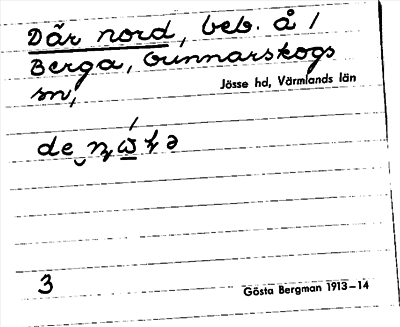 Där nord, beb. å /
Berga, Gunnarskogs
sn,
Jösse hd, Värmlands län
3
Gösta Bergman 1913–14